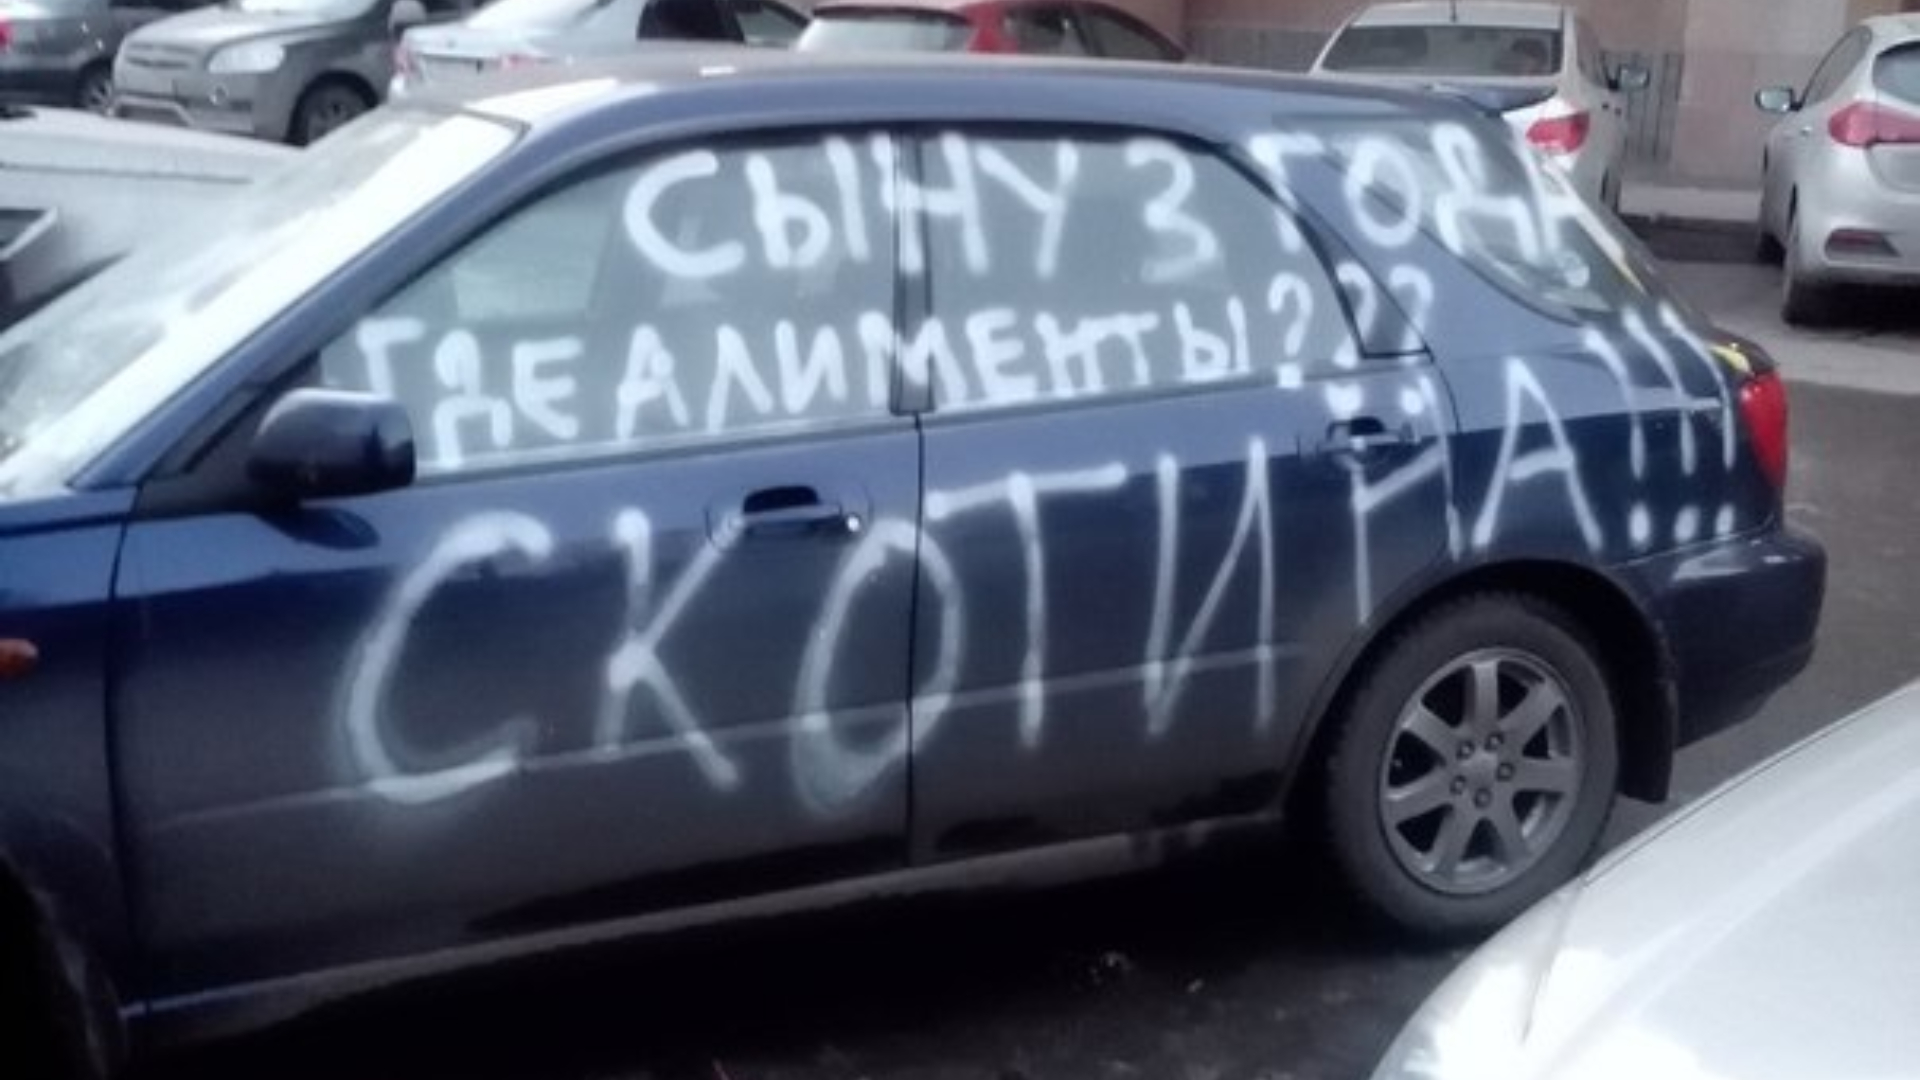 СЫНУ 3 ГОДА
ГДЕ АЛИМЕНТЫ???
СКОТИНА!!!